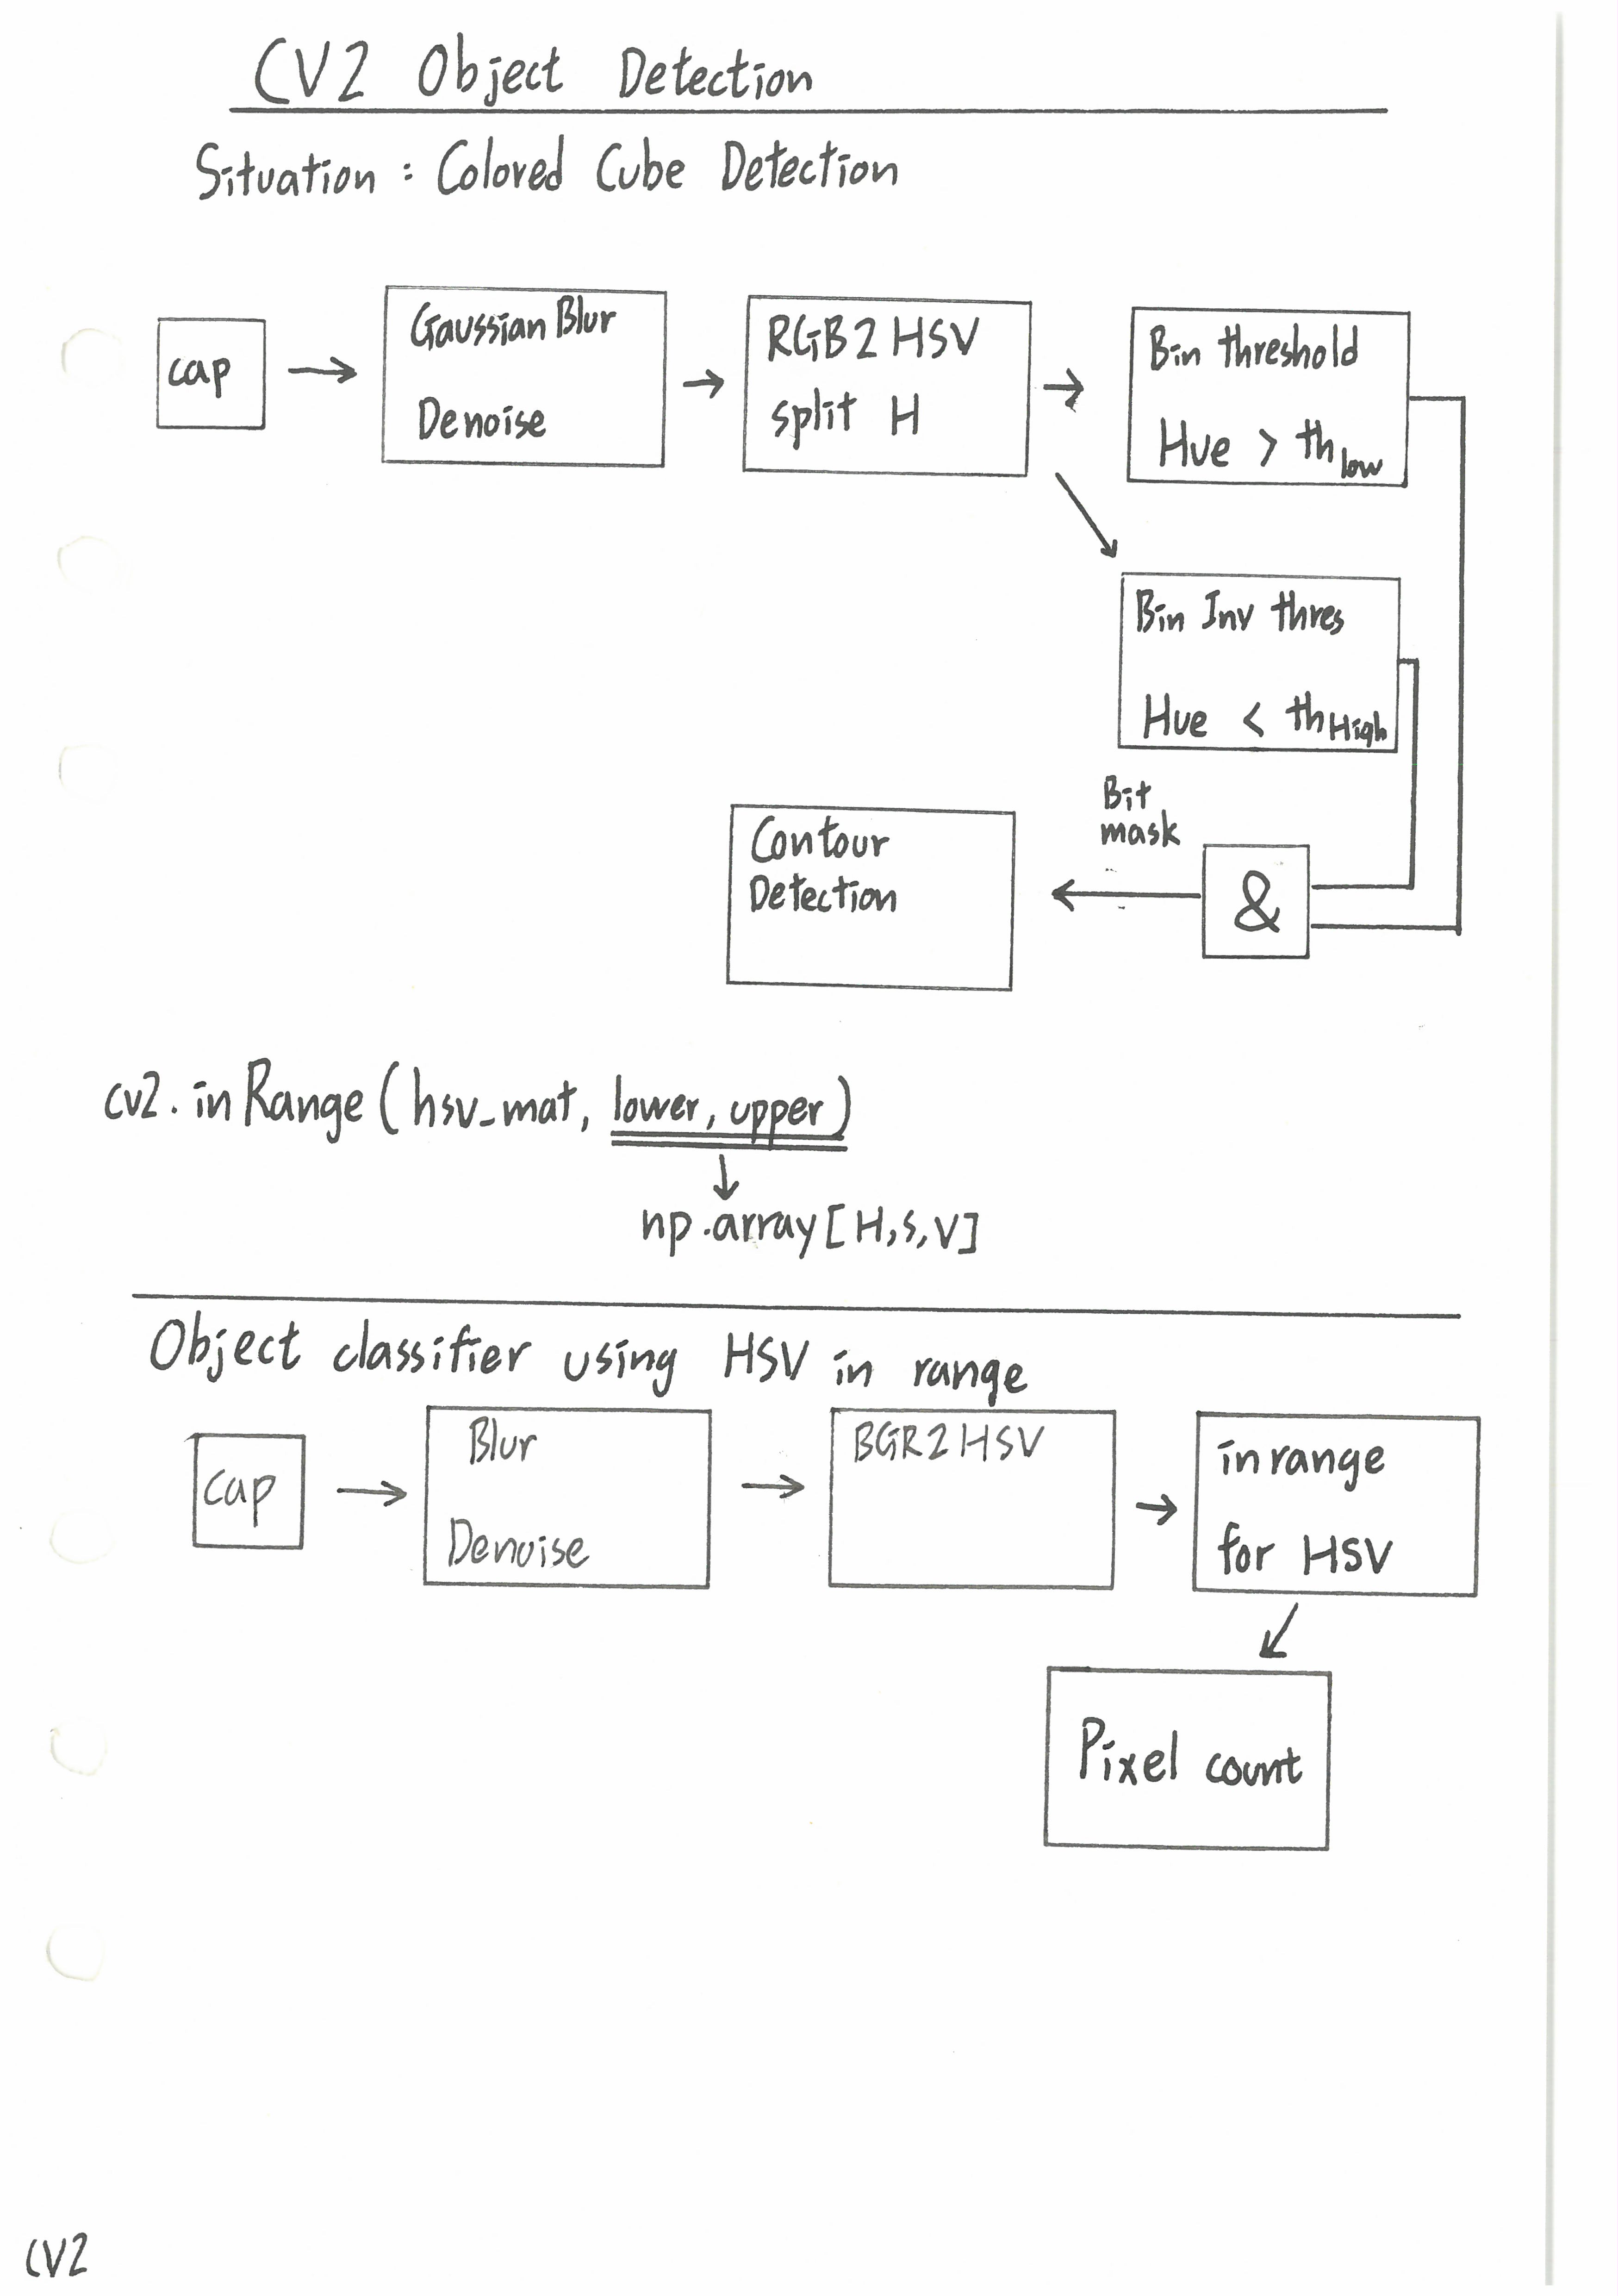 CV2 Object Detection
Situation : Colored Cube Detection
cap
Gaussian Blur
Denoise
RGB2HSV
split H
Bin threshold
Hue > th low
Bin Inv thres
Hue < th High
Bit
mask
&
Contour
Detection
cv2.inRange(hsv_mat, lower, upper)
np.array[H,S,V]
Object classifier using HSV in range
cap
Blur
Denoise
BGR2HSV
inrange
for HSV
Pixel count
CV2